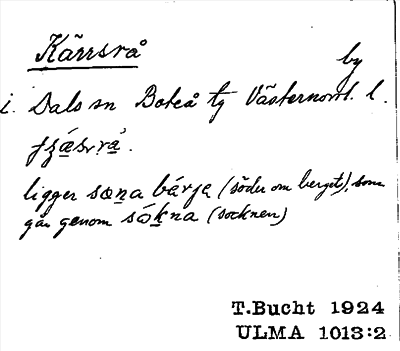 Kärrsrå
by
i. Dals sn Boteå tg Västernorrl. l.
ligger sœna bárję (söder om berget), som
går genom sókna (socknen)
T.Bucht 1924
ULMA 1013:2